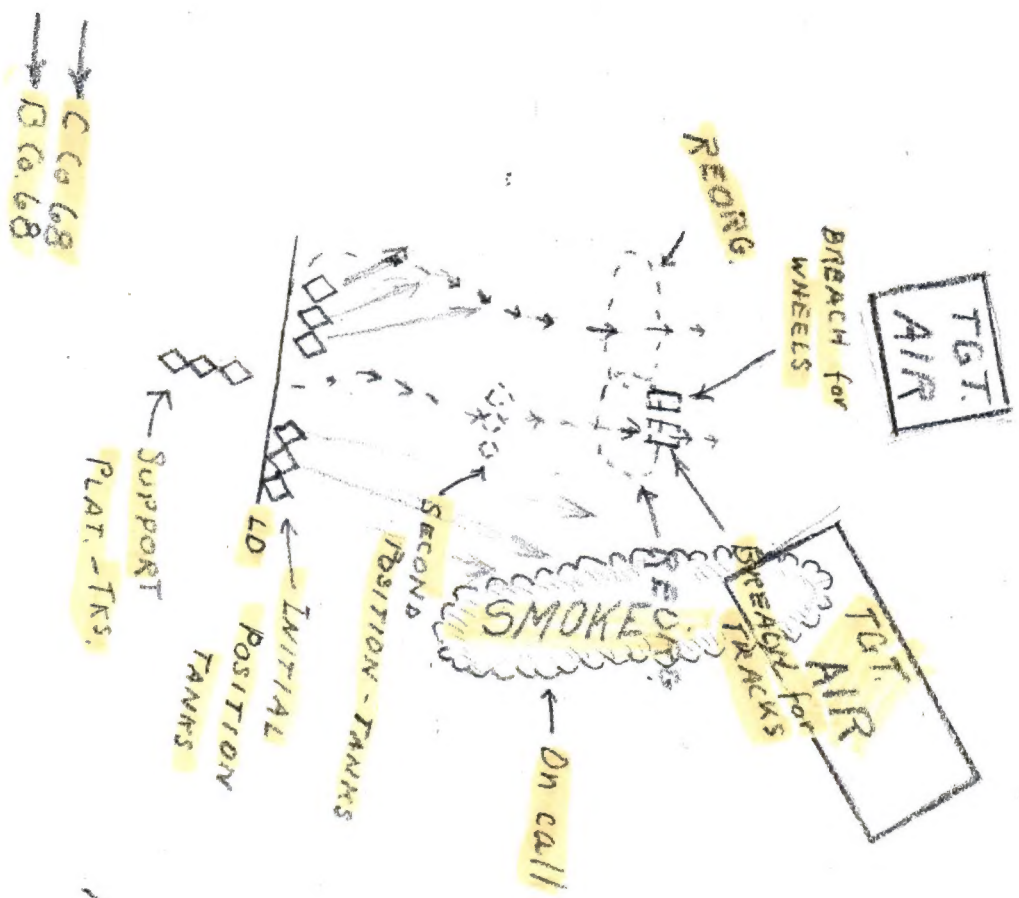 C Co 68
B Co. 68
REORG.
BREACH for
WHEELS
TGT.
AIR
TGT.
AIR
BREACH for
TRACKS
SMOKE
On call
SECOND
POSITION - TANKS
LD
INITIAL
POSITION
TANKS
SUPPORT
PLAT. - TKS.